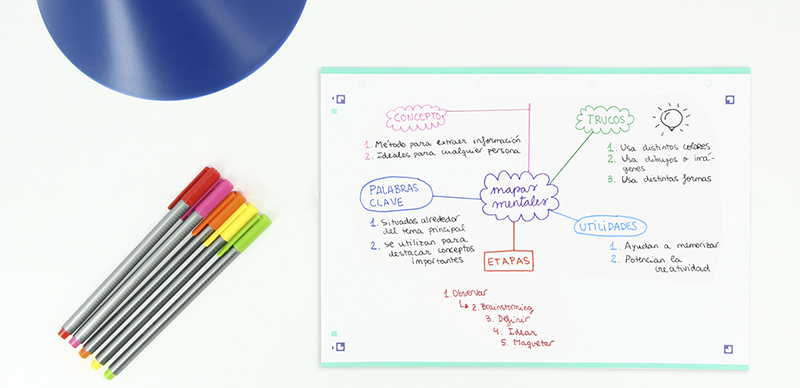 CONCEPTO
1. Método para extraer información
2. Ideales para cualquier persona
TRUCOS
1. Usa distintos colores
2. Usa dibujos o imá-
genes
3. Usa distintas formas
PALABRAS
CLAVE
1. Situadas alrededor
del tema principal
2. Se utilizan para
destacar conceptos
importantes
mapas
mentales
UTILIDADES
1. Ayudan a memorizar
2. Potencian la
creatividad
ETAPAS
1. Observar
2. Brainstorming
3. Definir
4. Idear
5. Maquetar